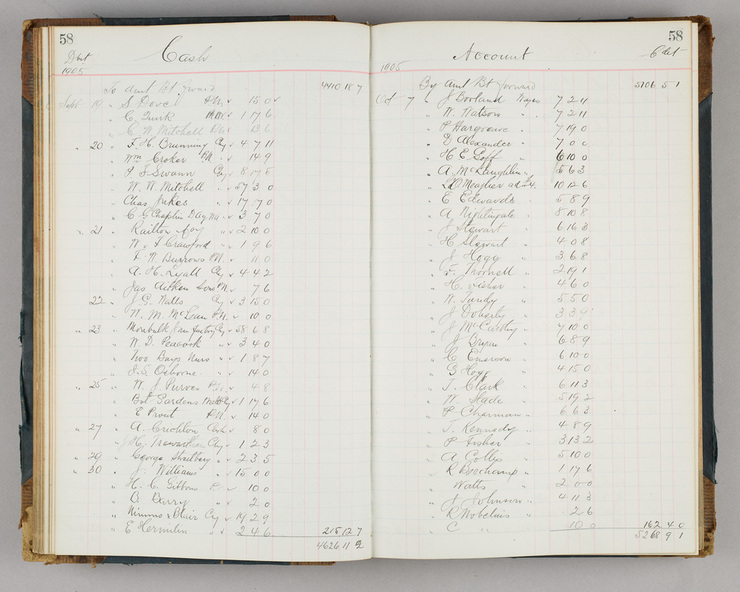 58
Cash
1905
To Amt Bt Forward 4410 18 7
19 S. Bovel 15 0
C. Quirk 1 17 6
C. W. Mitchell 13 6
20 F. H. Brunning Cy 4 7 11
Wm Croker 14 9
P. J. Swann 8 17 6
W. W. Mitchell 57 3 0
Chas Jukes 17 17 0
C. G. Chaplin 3 7 0
21 2 10 0
W. & J. Crawford 1 9 6
W. Burrows 11 0
A. H. Lyall Cy 4 4 2
Jas Aitken 7 6
22 J. G. Watts Cy 3 15 0
W. M. McLean 10 0
23 Cy 58 6 8
W. D. Peacock 3 4 0
Two Bays Nurs 1 8 7
J. S. Osborne 14 0
25 W. J. Purves 4 8
Bot Gardens 1 17 6
E. Prout 14 0
27 A. Crichton Cash 8 0
Cy 1 2 3
29 George 2 3 5
30 J. Williams 15 0 0
H. C. Gibbons 10 0
B. Barry 2 0
Nimmo & Blair Cy 14 2 9
E. 2 4 6 215 12 7
4626 11 2
58
Account
1905
By Amt Bt Forward 5106 5 1
Oct 7 J. Borland Wages 7 2 11
W. Watson 7 2 11
P. Hargrave 7 19 0
E. Alexander 7 0 0
H. E. Goff 6 10 0
A. McLaughlin 5 6 3
Meagher 10 12 6
E. Edwards 5 8 9
A. Nightingale 5 10 8
J. Stewart 6 16 3
H. Stewart 4 0 8
J. Hogg 3 6 8
F. Thornell 2 19 1
H. Fisher 4 6 0
W. Tandy 5 5 0
J. Doherty 3 3 9
J. McCarthy 7 10 0
J. Bryan 6 8 9
C. Emerson 6 10 0
G. Hogg 4 15 0
T. Clark 6 11 3
W. Slade 5 19 2
P. Chapman 6 6 3
T. Kennedy 4 8 9
P. Fisher 3 13 2
A. Colley 5 10 0
R. Beechamp 1 17 6
Watts 2 0 0
J. Johnson 4 11 3
R. 2 6
C 10 0 162 4 0
5268 9 1